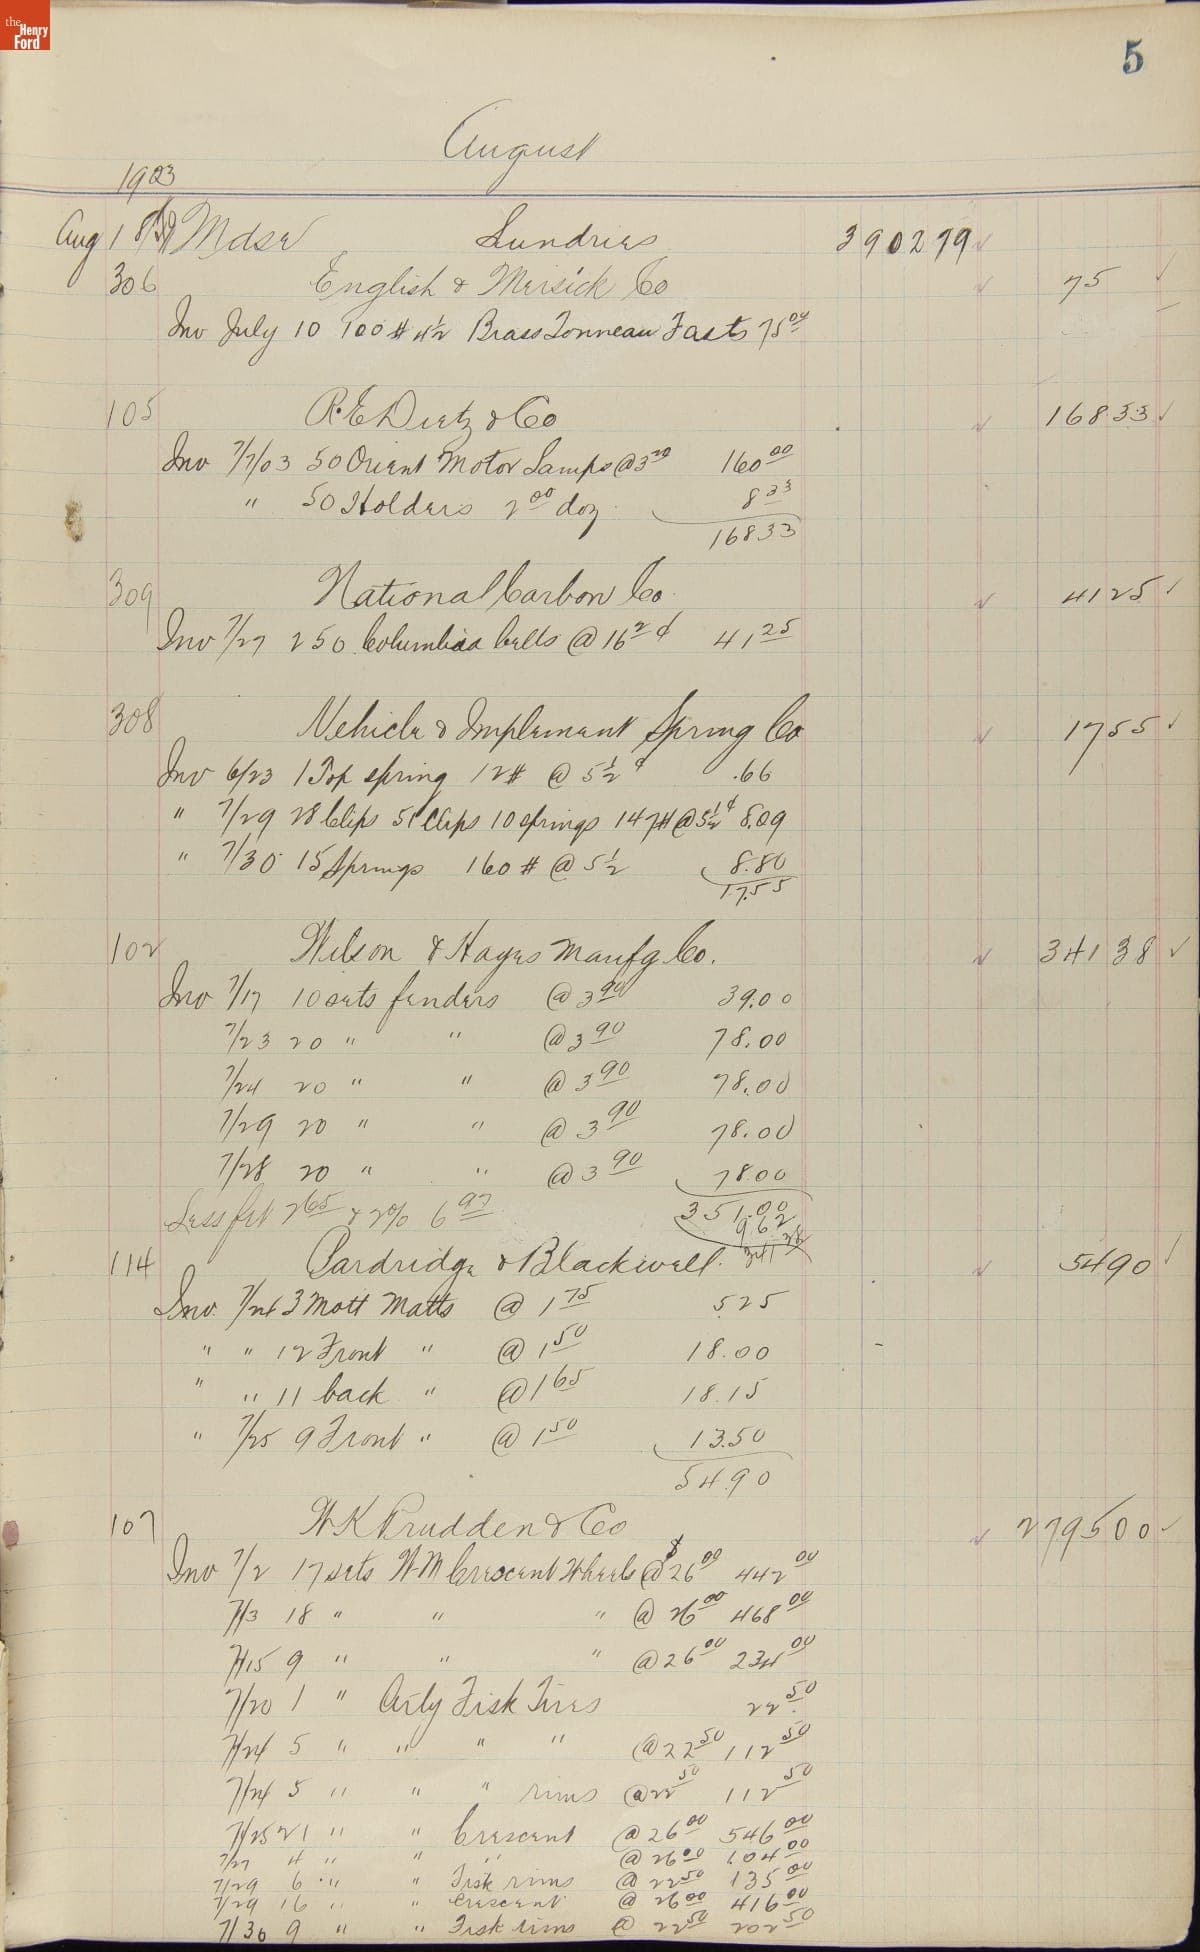 the Henry Ford
5
August
1903
Aug 1 Mdse Sundries 3902 79
306 English & Mersick Co 75
Inv July 10 100 # 4½ Brass Tonneau Fasts 75 00
105 R.E. Dietz & Co 168 33
Inv 7/7/03 50 Orient Motor Lamps @ 3 20 160 00
" 50 Holders 2 00 doz 8 33
168 33
309 National Carbon Co. 41 25
Inv 7/27 250 Columbia Cells @ 16 2 ¢ 41 25
308 Vehicle & Implement Spring Co 17 55
Inv 6/23 1 Top spring 12# @ 5½ ¢ .66
" 7/29 28 Clips 51 Clips 10 springs 147# @ 5½ ¢ 8.09
" 7/30 15 Springs 160 # @ 5½ 8.80
17.55
102 Wilson & Hayes Manfg Co. 341 38
Inv 7/17 10 sets fenders @ 3 90 39.00
7/23 20 " " @ 3 90 78.00
7/24 20 " " @ 3 90 78.00
7/29 20 " " @ 3 90 78.00
7/28 20 " " @ 3 90 78.00
Less frt 2 65 & 2% 6 97 351.00
9 62
341 38
114 Pardridge & Blackwell. 54 90
Inv. 7/24 3 Mott Matts @ 1 75 5.25
" " 12 Front " @ 1 50 18.00
" " 11 back " @ 1 65 18.15
" 7/25 9 Front " @ 1 50 13.50
54.90
107 W K Prudden & Co 2795 00
Inv 7/2 17 sets W M Crescent Wheels @ $26 00 442 00
7/3 18 " " " @ 26 00 468 00
7/15 9 " " " @ 26 00 234 00
7/20 1 " Arty Fisk Tires 22 50
7/24 5 " " " " @ 22 50 112 50
7/24 5 " " " rims @ 22 50 112 50
7/25 21 " " Crescent @ 26 00 546 00
7/27 4 " " " @ 26 00 104 00
7/29 6 " " Fisk rims @ 22 50 135 00
7/29 16 " " Crescent @ 26 00 416 00
7/30 9 " " Fisk rims @ 22 50 202 50